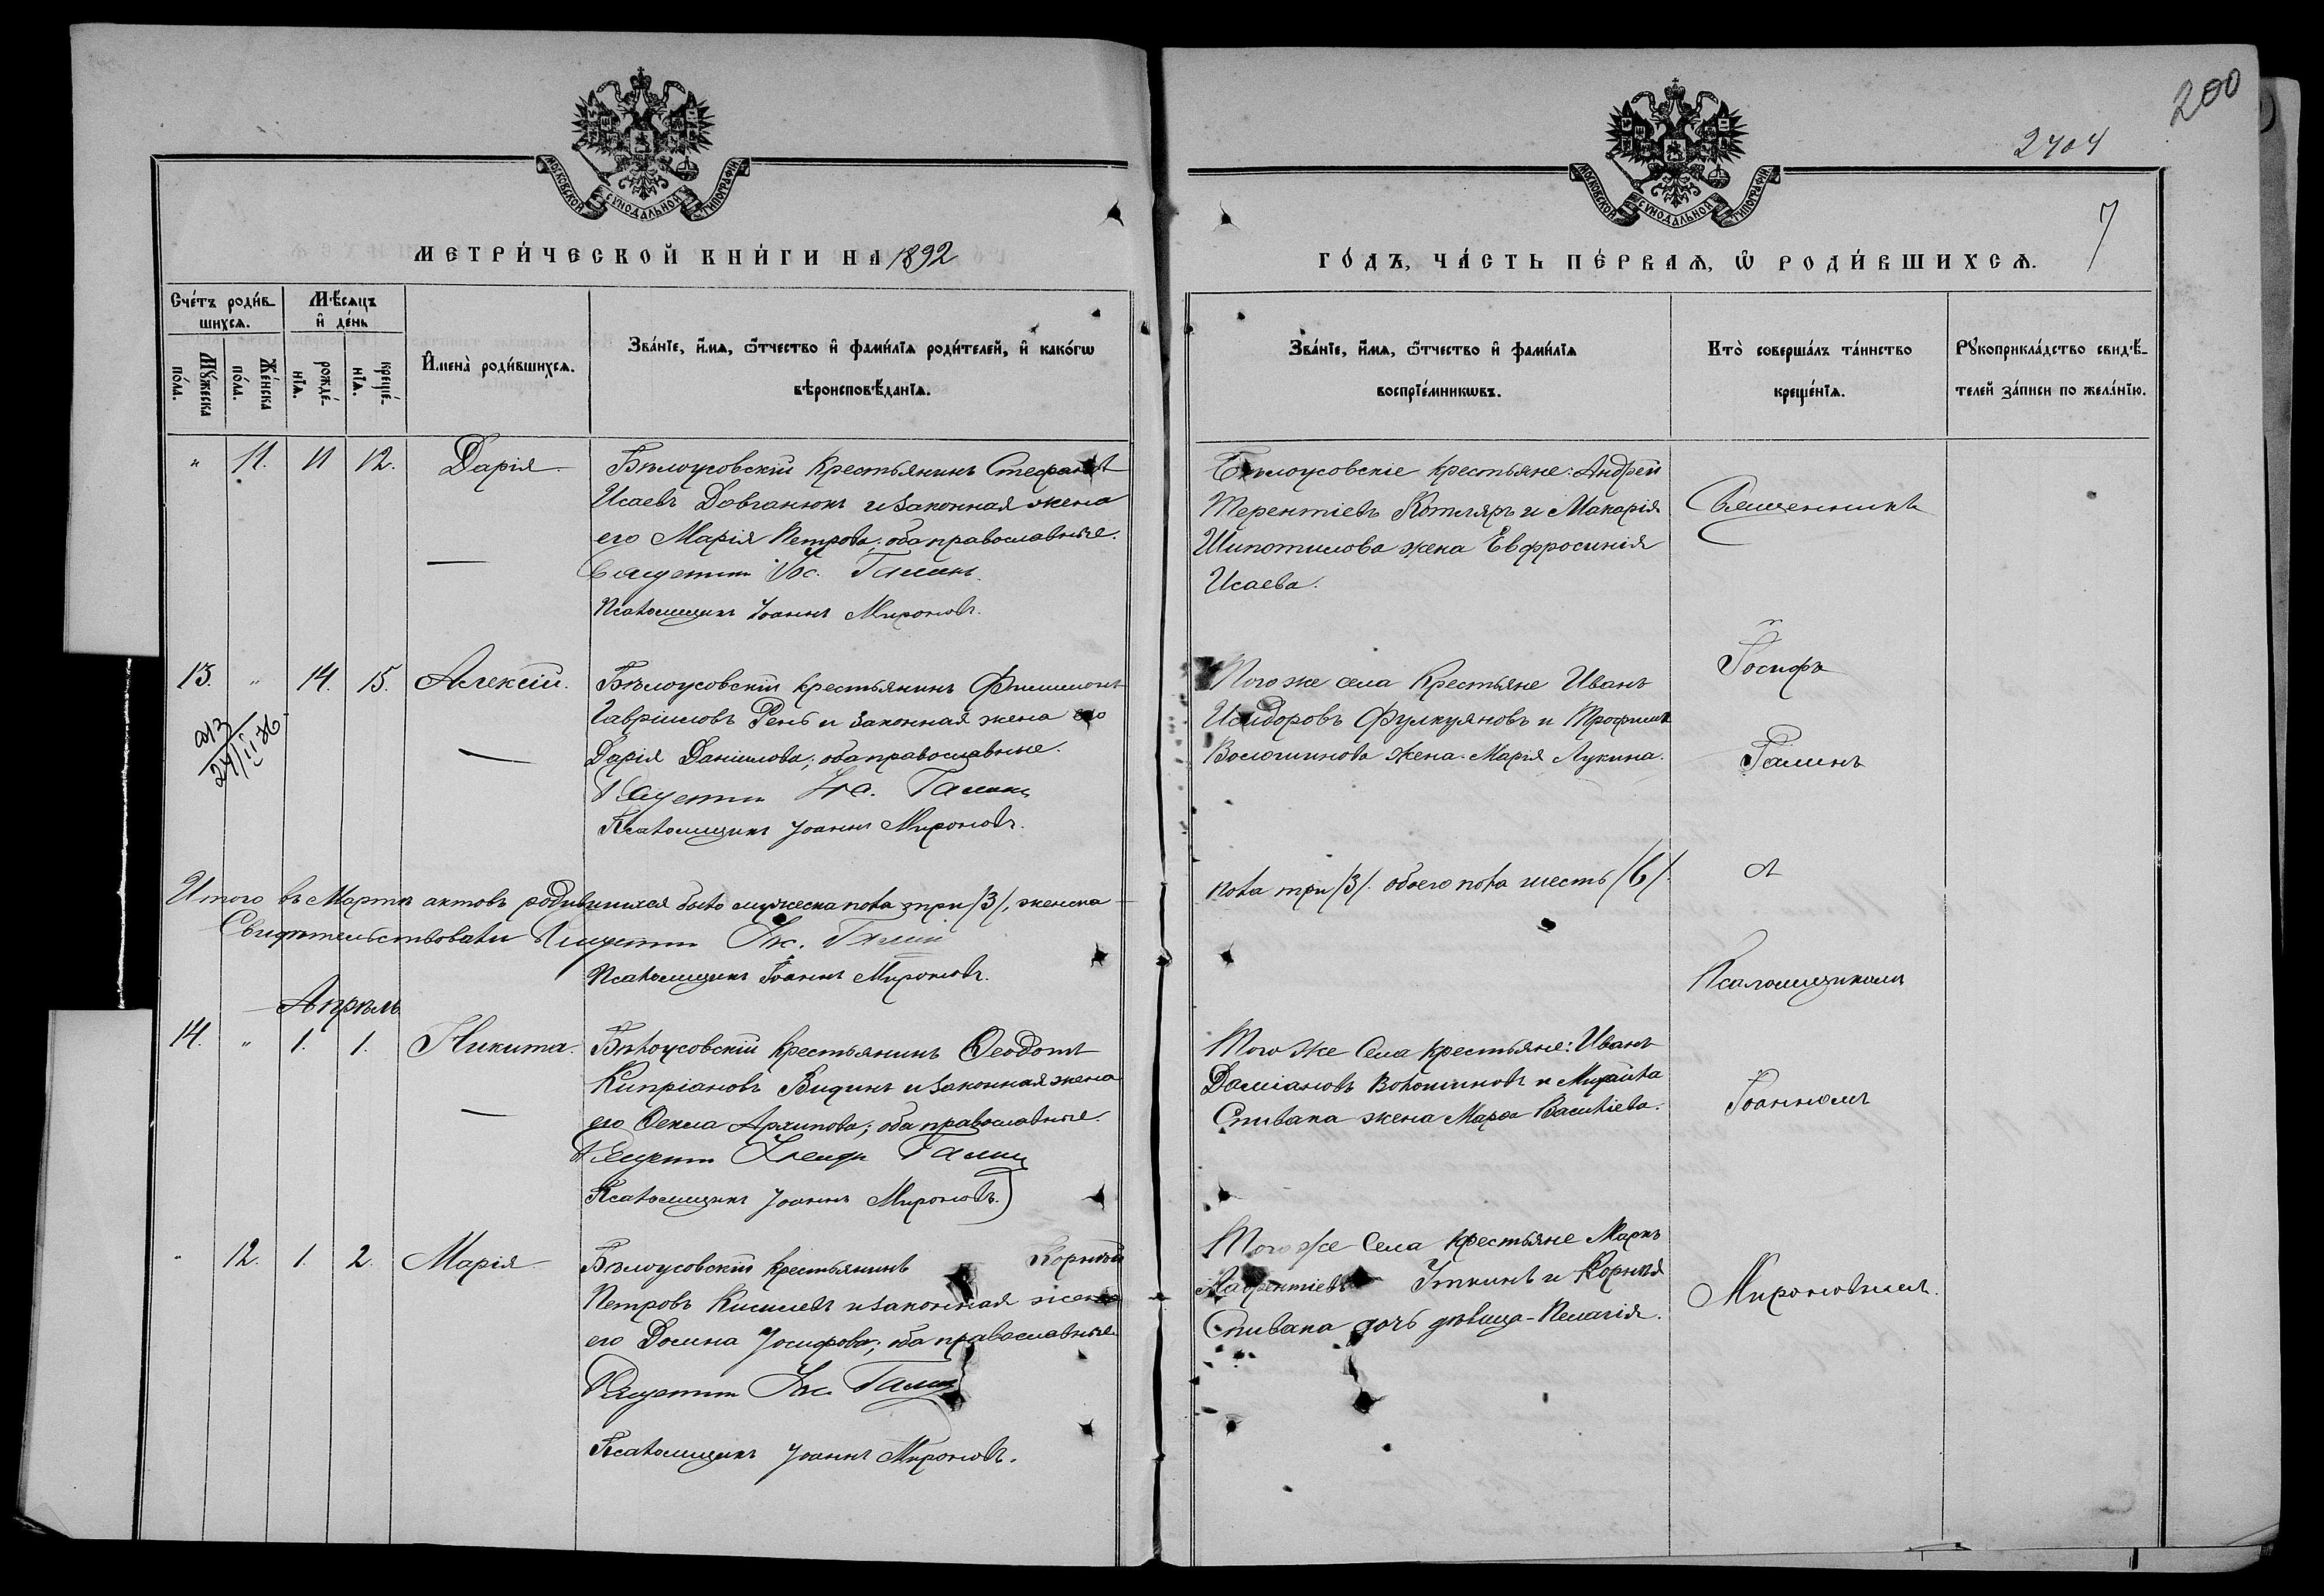 200
2404
7
МОСКОВСКОЙ СѴНОДАЛЬНОЙ ТИПОГРАФІИ
МОСКОВСКОЙ СѴНОДАЛЬНОЙ ТИПОГРАФІИ
МЕТРИ́ЧЕСКОЙ КНИ́ГИ НА 1892
ГО́ДЪ, ЧА́СТЬ ПЕ́РВАѦ, Ѡ РОДИ́ВШИХСѦ.
Сче́тъ роди́в-
шихсѧ.
Мѣ́сѧцъ
и҆ де́нь
Мꙋ́жеска
по́ла.
Же́нска
по́ла.
рожде́-
нїѧ.
креще́-
нїѧ.
И҆мена̀ роди́вшихсѧ.
Зва́нїе, и҆́мѧ, ѻ҆́тчество и҆ фами́лїѧ роди́телей, и҆ како́гѡ
вѣроисповѣ́данїѧ.
Зва́нїе, и҆́мѧ, ѻ҆́тчество и҆ фами́лїѧ
воспрїе́мникѡвъ.
Кто̀ соверша́лъ та́инство
креще́нїѧ.
Рꙋкоприкла́дство свидѣ́-
телей за́писи по жела́нїю.
" 11. 11 12. Дарія
Бѣлоусовскій крестьянинъ Стефанъ
Исаевъ Довганюкъ и законная жена
его Марія Петрова; оба православные.
Іос. Галинъ
Псаломщикъ Іоаннъ Мироновъ.
Бѣлоусовскіе крестьяне: Андрей
Терентіевъ Котляръ и Макарія
Шипотилова жена Евфросинія
Исаева.
Священникъ
13. " 14. 15. Алексій.
Бѣлоусовскій крестьянинъ Филимонъ
Гавріиловъ Рень и законная жена его
Дарія Даніилова; оба православные.
Іос. Галинъ
Псаломщикъ Іоаннъ Мироновъ.
Того же села крестьяне Иванъ
Исидоровъ Фулкуяновъ и Трофима
Волошинова жена Марія Лукина.
Іосифъ
Галинъ
24/II 36
Итого въ Мартѣ актовъ родившихся было мужеска пола три /3/, женска
пола три /3/. обоего пола шесть /6/.
Свидѣтельствовали Іос. Галинъ
Псаломщикъ Іоаннъ Мироновъ.
Псаломщикомъ
Апрѣль
14. " 1. 1. Никита.
Бѣлоусовскій крестьянинъ Ѳеодотъ
Кипріановъ Видинъ и законная жена
его Ѳекла Архипова; оба православные.
Галинъ
Псаломщикъ Іоаннъ Мироновъ.
Того же села крестьяне: Иванъ
Даміановъ Волошиновъ и Михаила
Спивака жена Марѳа Василіева.
Іоанномъ
" 12. 1. 2. Марія
Бѣлоусовскій крестьянинъ Корнѣй
Петровъ Киселевъ и законная жена
его Домна Іосифова; оба православные.
Іос. Галинъ
Псаломщикъ Іоаннъ Мироновъ.
Того же села крестьяне Маркъ
Лаврентіевъ Уткинъ и Корнѣя
Спивака дочь дѣвица Пелагія.
Мироновымъ.